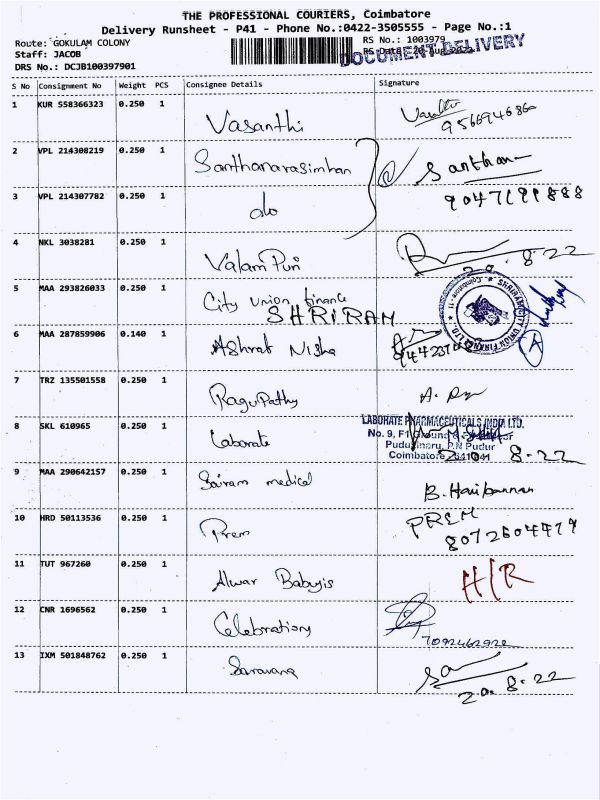 THE PROFESSIONAL COURIERS, Coimbatore
Delivery Runsheet - P41 - Phone No.:0422-3505555 - Page No.:1
Route: GOKULAM COLONY
RS No.: 1003979
Staff: JACOB
RS Date: 20-Aug-2022
DOCUMENT DELIVERY
DRS No.: DCJB100397901
S No Consignment No Weight PCS Consignee Details Signature
1 KUR 558366323 0.250 1 Vasanthi
2 VPL 214308219 0.250 1 Santhanarasimhan Santhan
3 VPL 214307782 0.250 1 do
4 NKL 3038281 0.250 1 Valam Puri 20.8.22
5 MAA 293826033 0.250 1 City Union finance
SHRIRAM
SHRIRAM CITY UNION FINANCE LTD. Coimbatore-11
6 MAA 287859906 0.140 1 Ashrat Nisha
7 TRZ 135501558 0.250 1 Ragupathy
8 SKL 610965 0.250 1 Laborate
LABORATE PHARMACEUTICALS INDIA LTD.
No. 9,
P.N Pudur
Coimbatore 641041
20.8.22
9 MAA 290642157 0.250 1 Sairam medical
10 HRD 50113536 0.250 1 Prem PREM
8072604479
11 TUT 967260 0.250 1 Alwar Babyjis H/R
12 CNR 1696562 0.250 1 Celebrations
7092462922
13 IXM 501848762 0.250 1 Saravana
20.8.22